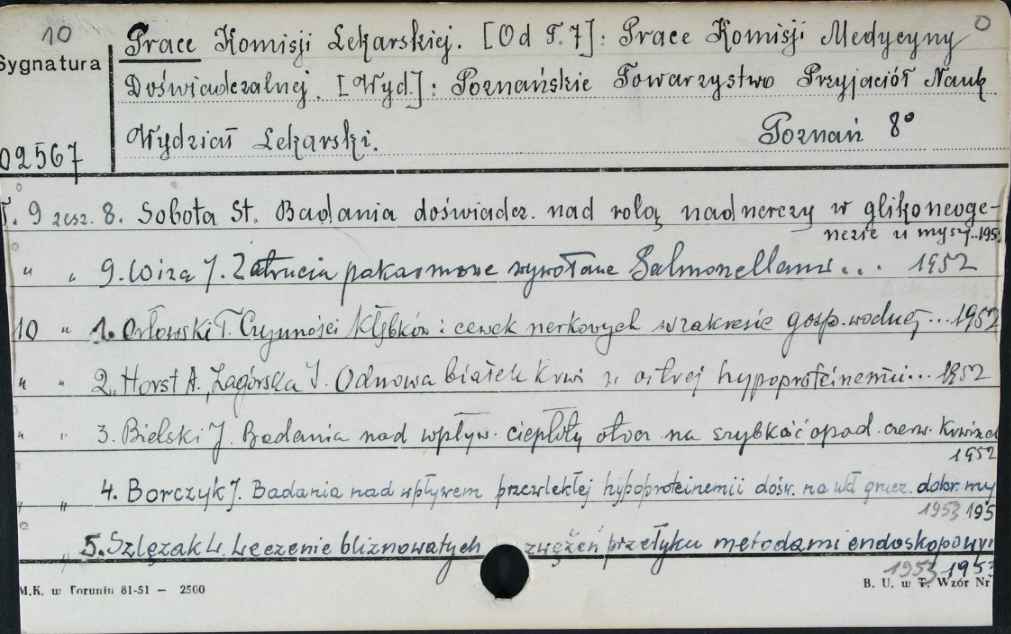 10
Prace Komisji Lekarskiej. [Od T. 7]: Prace Komisji Medycyny
Sygnatura
Doświadczalnej. [Wyd.]: Poznańskie Towarzystwo Przyjaciół Nauk
Wydział Lekarski. Poznań 8°
02567
T. 9 zesz. 8. Sobota St. Badania doświadcz. nad rolą nadnerczy w glikoneoge-
nezie u myszy..195
" " 9. Wiza J. Zatrucia pokarmowe wywołane Salmonellami... 1952
10 " 1. Orłowski T. Czynności kłębków i cewek nerkowych w zakresie gosp. wodnej...1952
" " 2. Horst A., Zagórska J. Odnowa białek krwi w ostrej hypoproteinemii... 1952
" " 3. Bielski J. Badania nad wpływ. ciepłoty otocz. na szybkość opad. czerw. krwinek
1952
" " 4. Borczyk J. Badania nad wpływem przewlekłej hypoproteinemii dośw. na grucz. dokr. my
1953 195
" 5. Szlęzak L. Leczenie bliznowatych zwężeń przełyku metodami endoskopowymi
1953 1953
M.K. w Toruniu 81-51 — 2500 B. U. w T. Wzór Nr